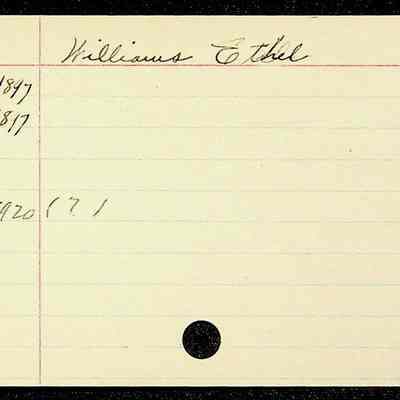 Williams Ethel
1897
1817
1920 (?)